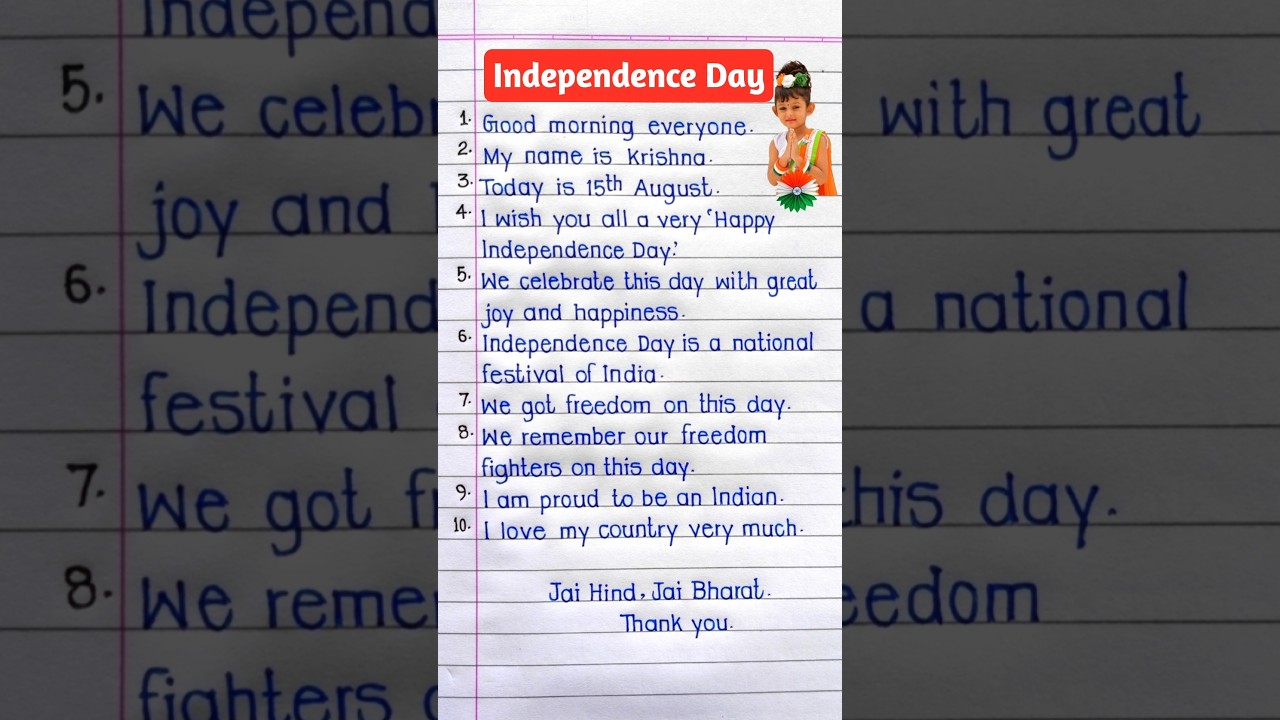 Independence Day
1. Good morning everyone.
2. My name is Krishna.
3. Today is 15th August.
4. I wish you all a very 'Happy
Independence Day.'
5. We celebrate this day with great
joy and happiness.
6. Independence Day is a national
festival of India.
7. We got freedom on this day.
8. We remember our freedom
fighters on this day.
9. I am proud to be an Indian.
10. I love my country very much.
Jai Hind, Jai Bharat.
Thank you.